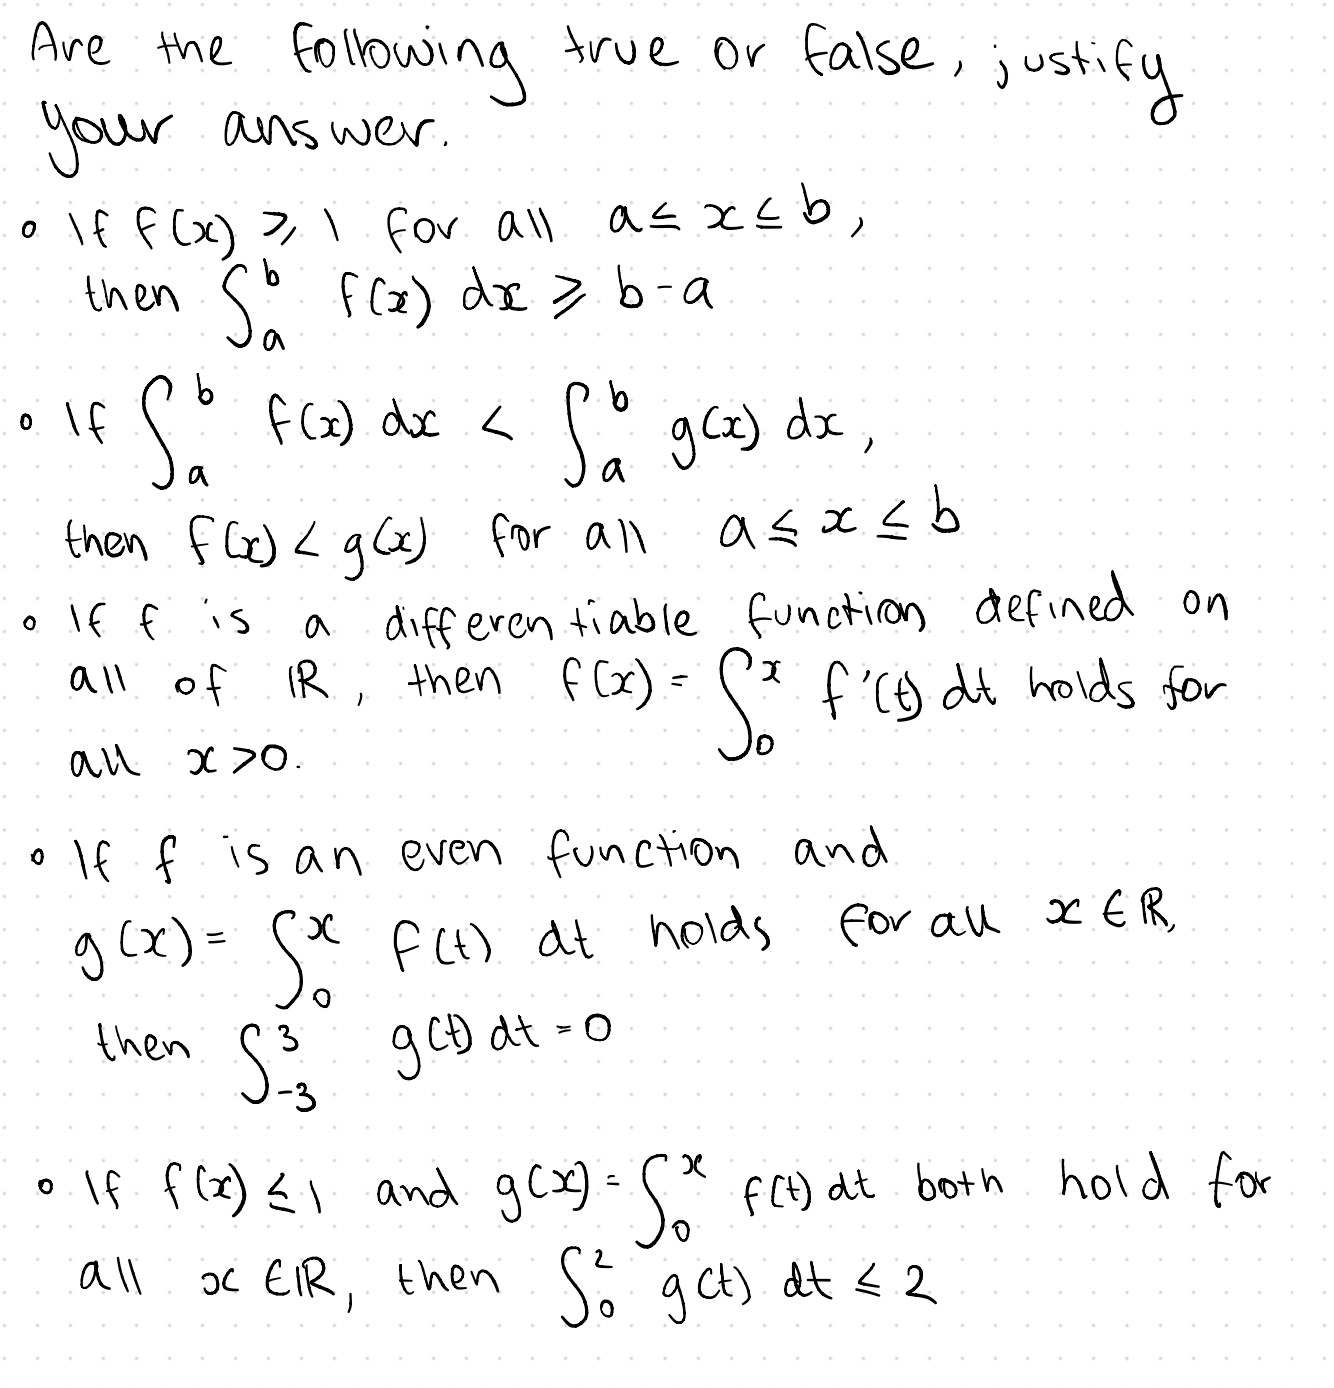 Are the following true or false, justify
your answer.
◦ If f(x) ⩾ 1 for all a ≤ x ≤ b,
then ∫_a^b f(x) dx ⩾ b-a
◦ If ∫_a^b f(x) dx < ∫_a^b g(x) dx,
then f(x) < g(x) for all a ≤ x ≤ b
◦ If f is a differentiable function defined on
all of ℝ, then f(x) = ∫_0^x f'(t) dt holds for
all x > 0.
◦ If f is an even function and
g(x) = ∫_0^x f(t) dt holds for all x ∈ ℝ,
then ∫_{-3}^3 g(t) dt = 0
◦ If f(x) ≤ 1 and g(x) = ∫_0^x f(t) dt both hold for
all x ∈ ℝ, then ∫_0^2 g(t) dt ≤ 2